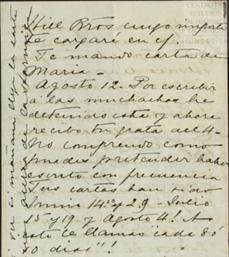 Hill Bros. cuyo importe
te cargaré en cf.
Te mando carta de
María -
Agosto 12. Por escribir
a las muchachas he
detenido esta y ahora
recibo tu grata del 4 -
No comprendo como
puedes pretender haber
escrito con frecuencia
Tus cartas han sido
Junio 14 y 29 - Julio
15 y 19 y Agosto 4! A
esto le llamas "cada 8 ó
10 dias"!